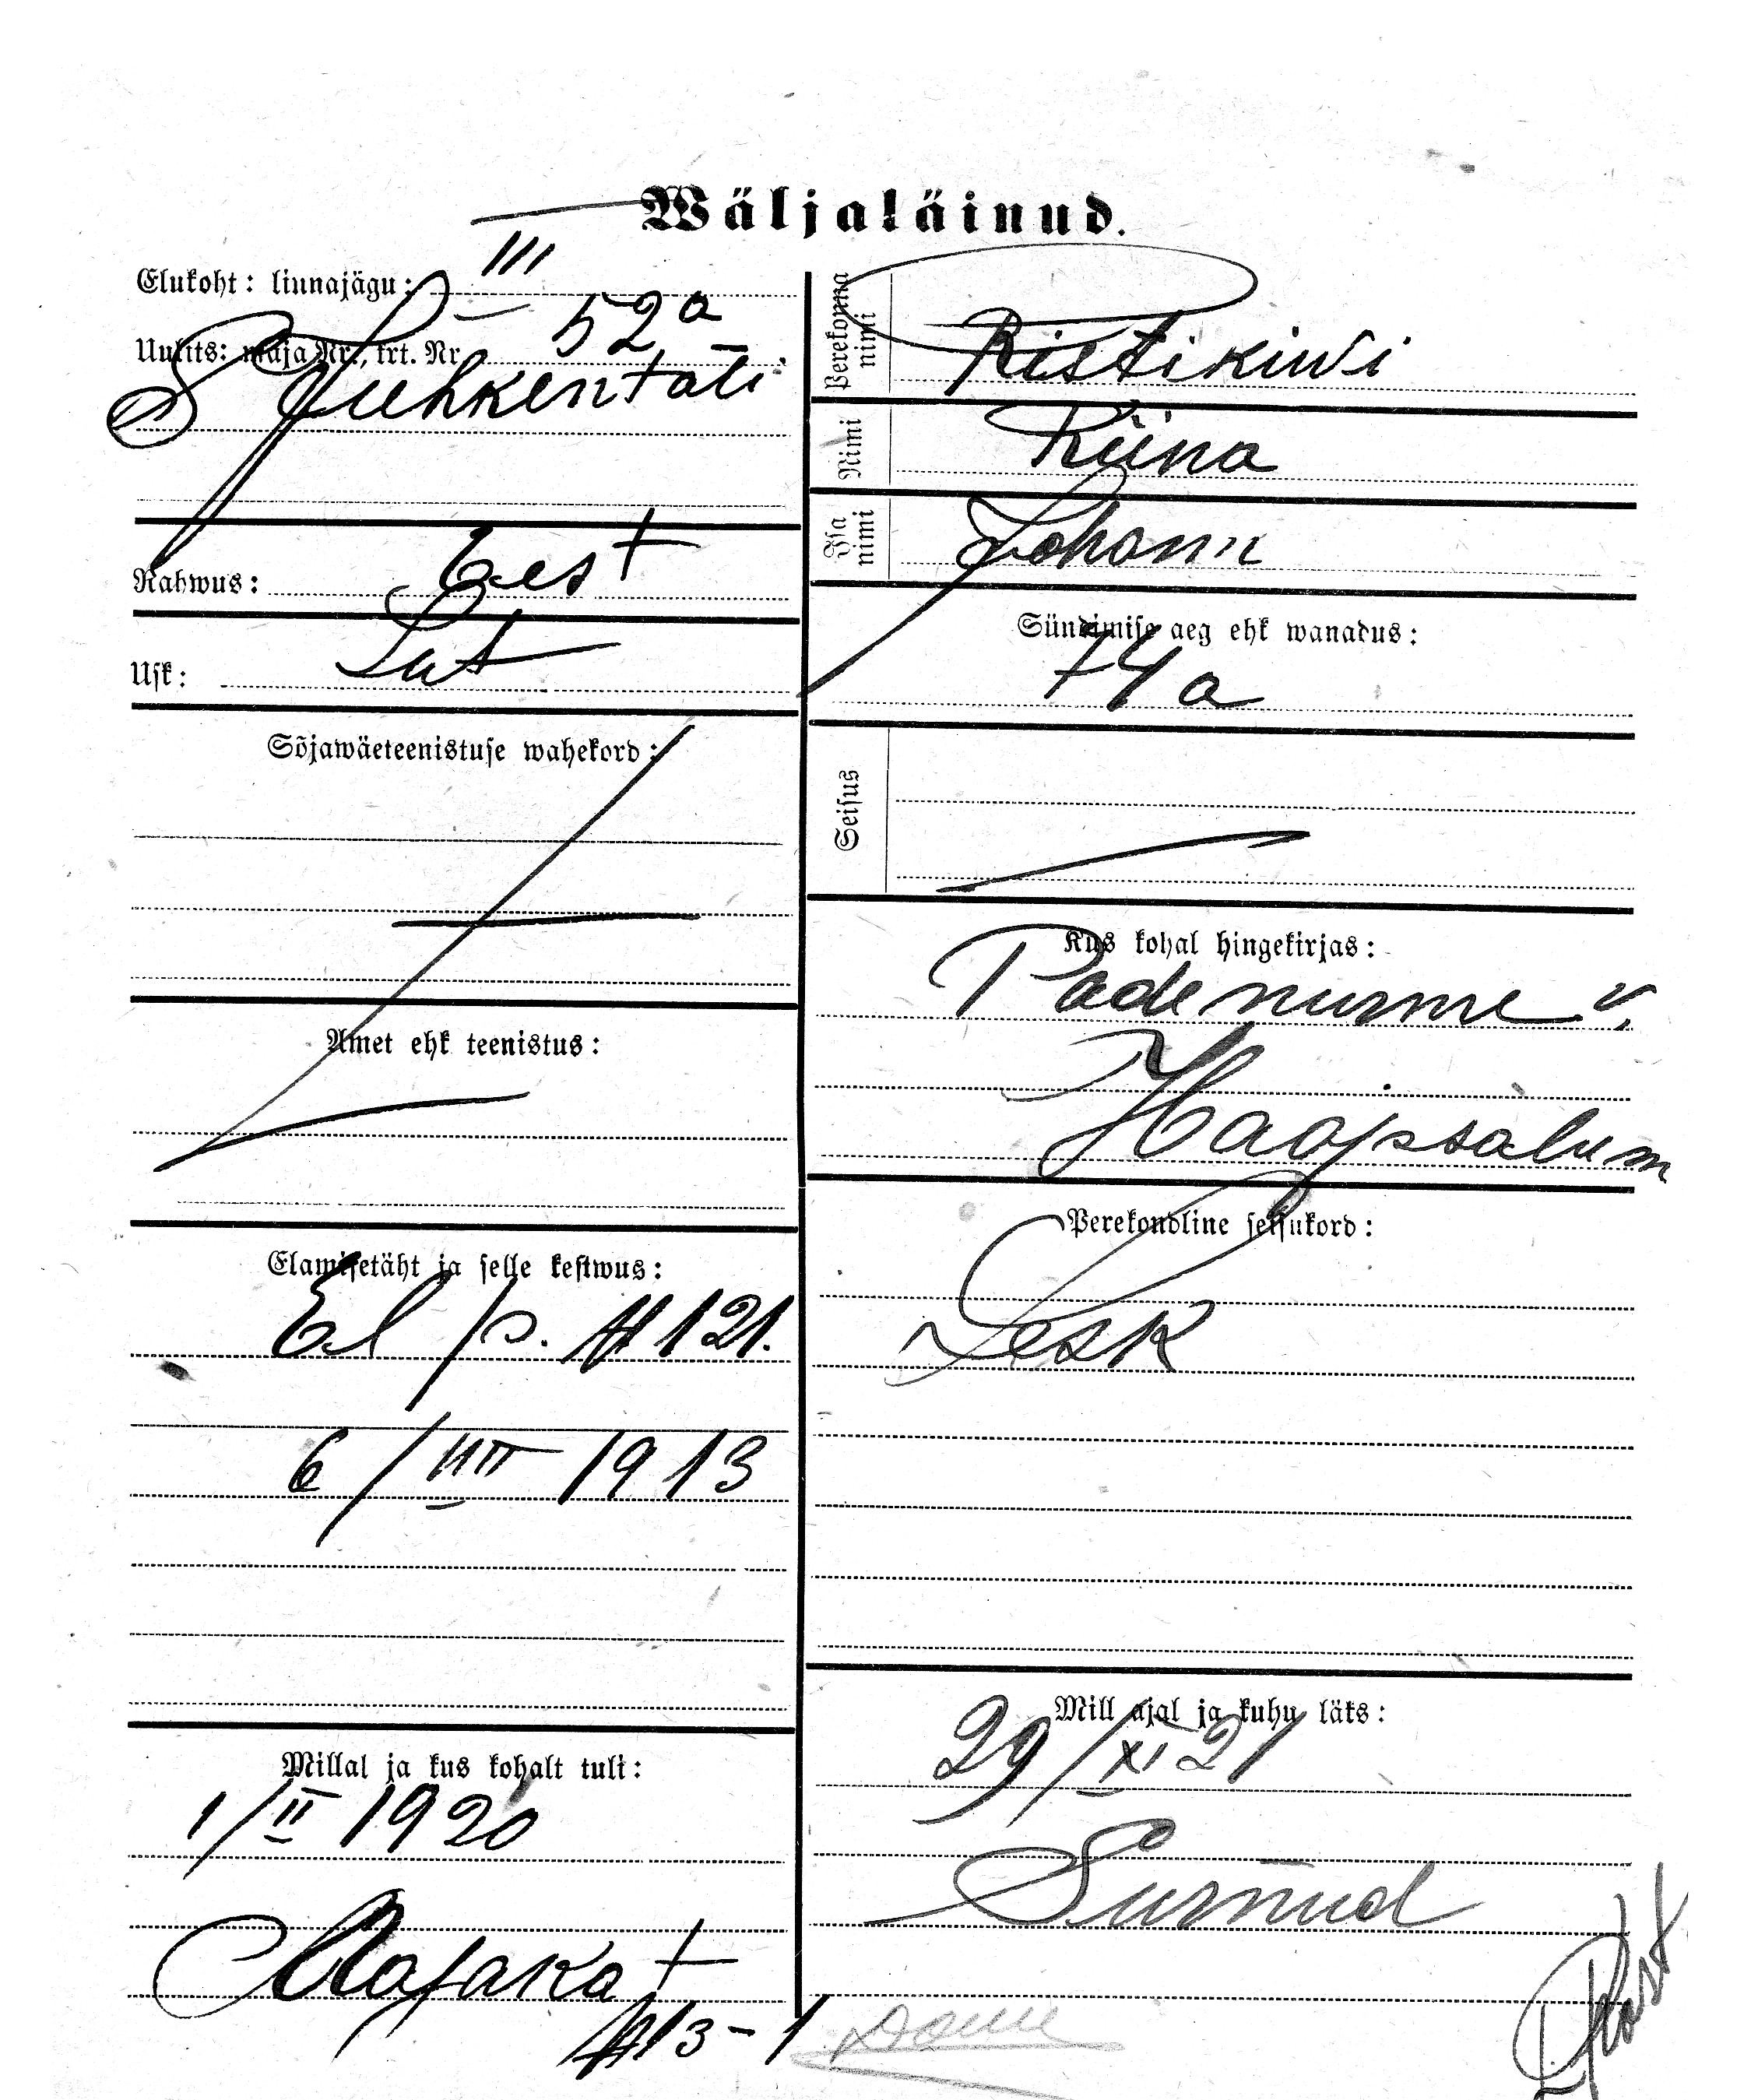 Wäljaläinud.
Elukoht: linnajägu: III
Uulits: maja Nr., krt. Nr. 52a
S Juhkentali
Rahwus: Eest
Usk: Lut
Sõjawäeteenistuse wahekord:
Amet ehk teenistus:
Elamisetäht ja selle kestwus:
El p. № 121.
6/VIII 1913
Millal ja kus kohalt tuli:
1/II 1920
Majaka t
№ 13-1
Perekonna nimi Ristikiwi
Nimi Riina
Isa nimi Johann
Sündimise aeg ehk wanadus:
74 a
Seisus
Kus kohal hingekirjas:
Padenurme v.
Haapsalu m
Perekondline seisukord:
Lesk
Mill ajal ja kuhu läks:
29/XI 21
Surnud